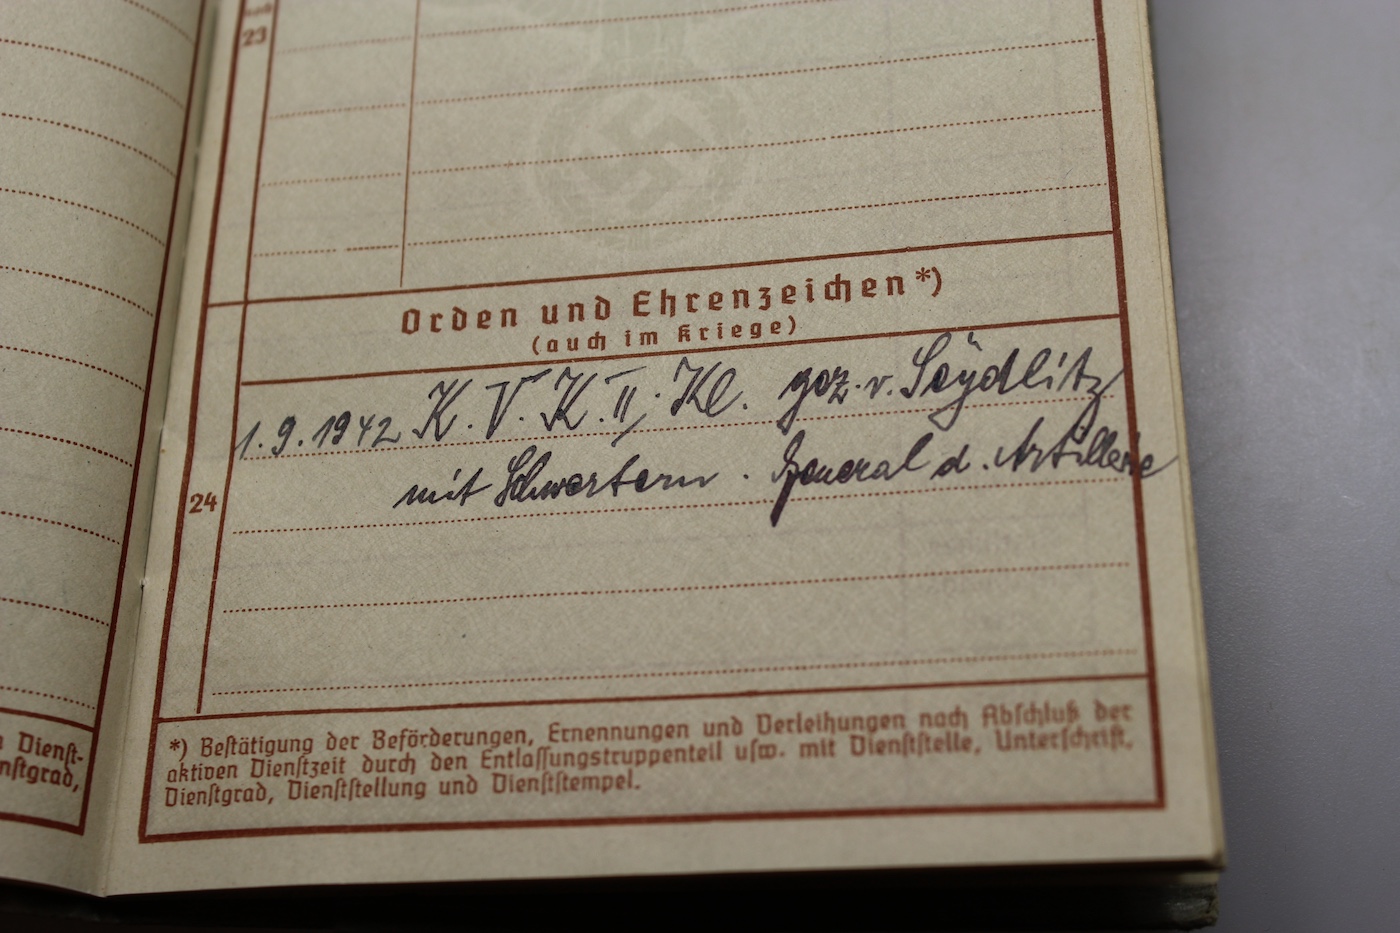 23
Orden und Ehrenzeichen*)
(auch im Kriege)
1.9.1942 K.V.K.II. Kl. gez. v. Seydlitz
mit Schwertern. General d. Artillerie
24
*) Bestätigung der Beförderungen, Ernennungen und Verleihungen nach Abschluß der
aktiven Dienstzeit durch den Entlassungstruppenteil usw. mit Dienststelle, Unterschrift,
Dienstgrad, Dienststellung und Dienststempel.
Dienst-
nstgrad,